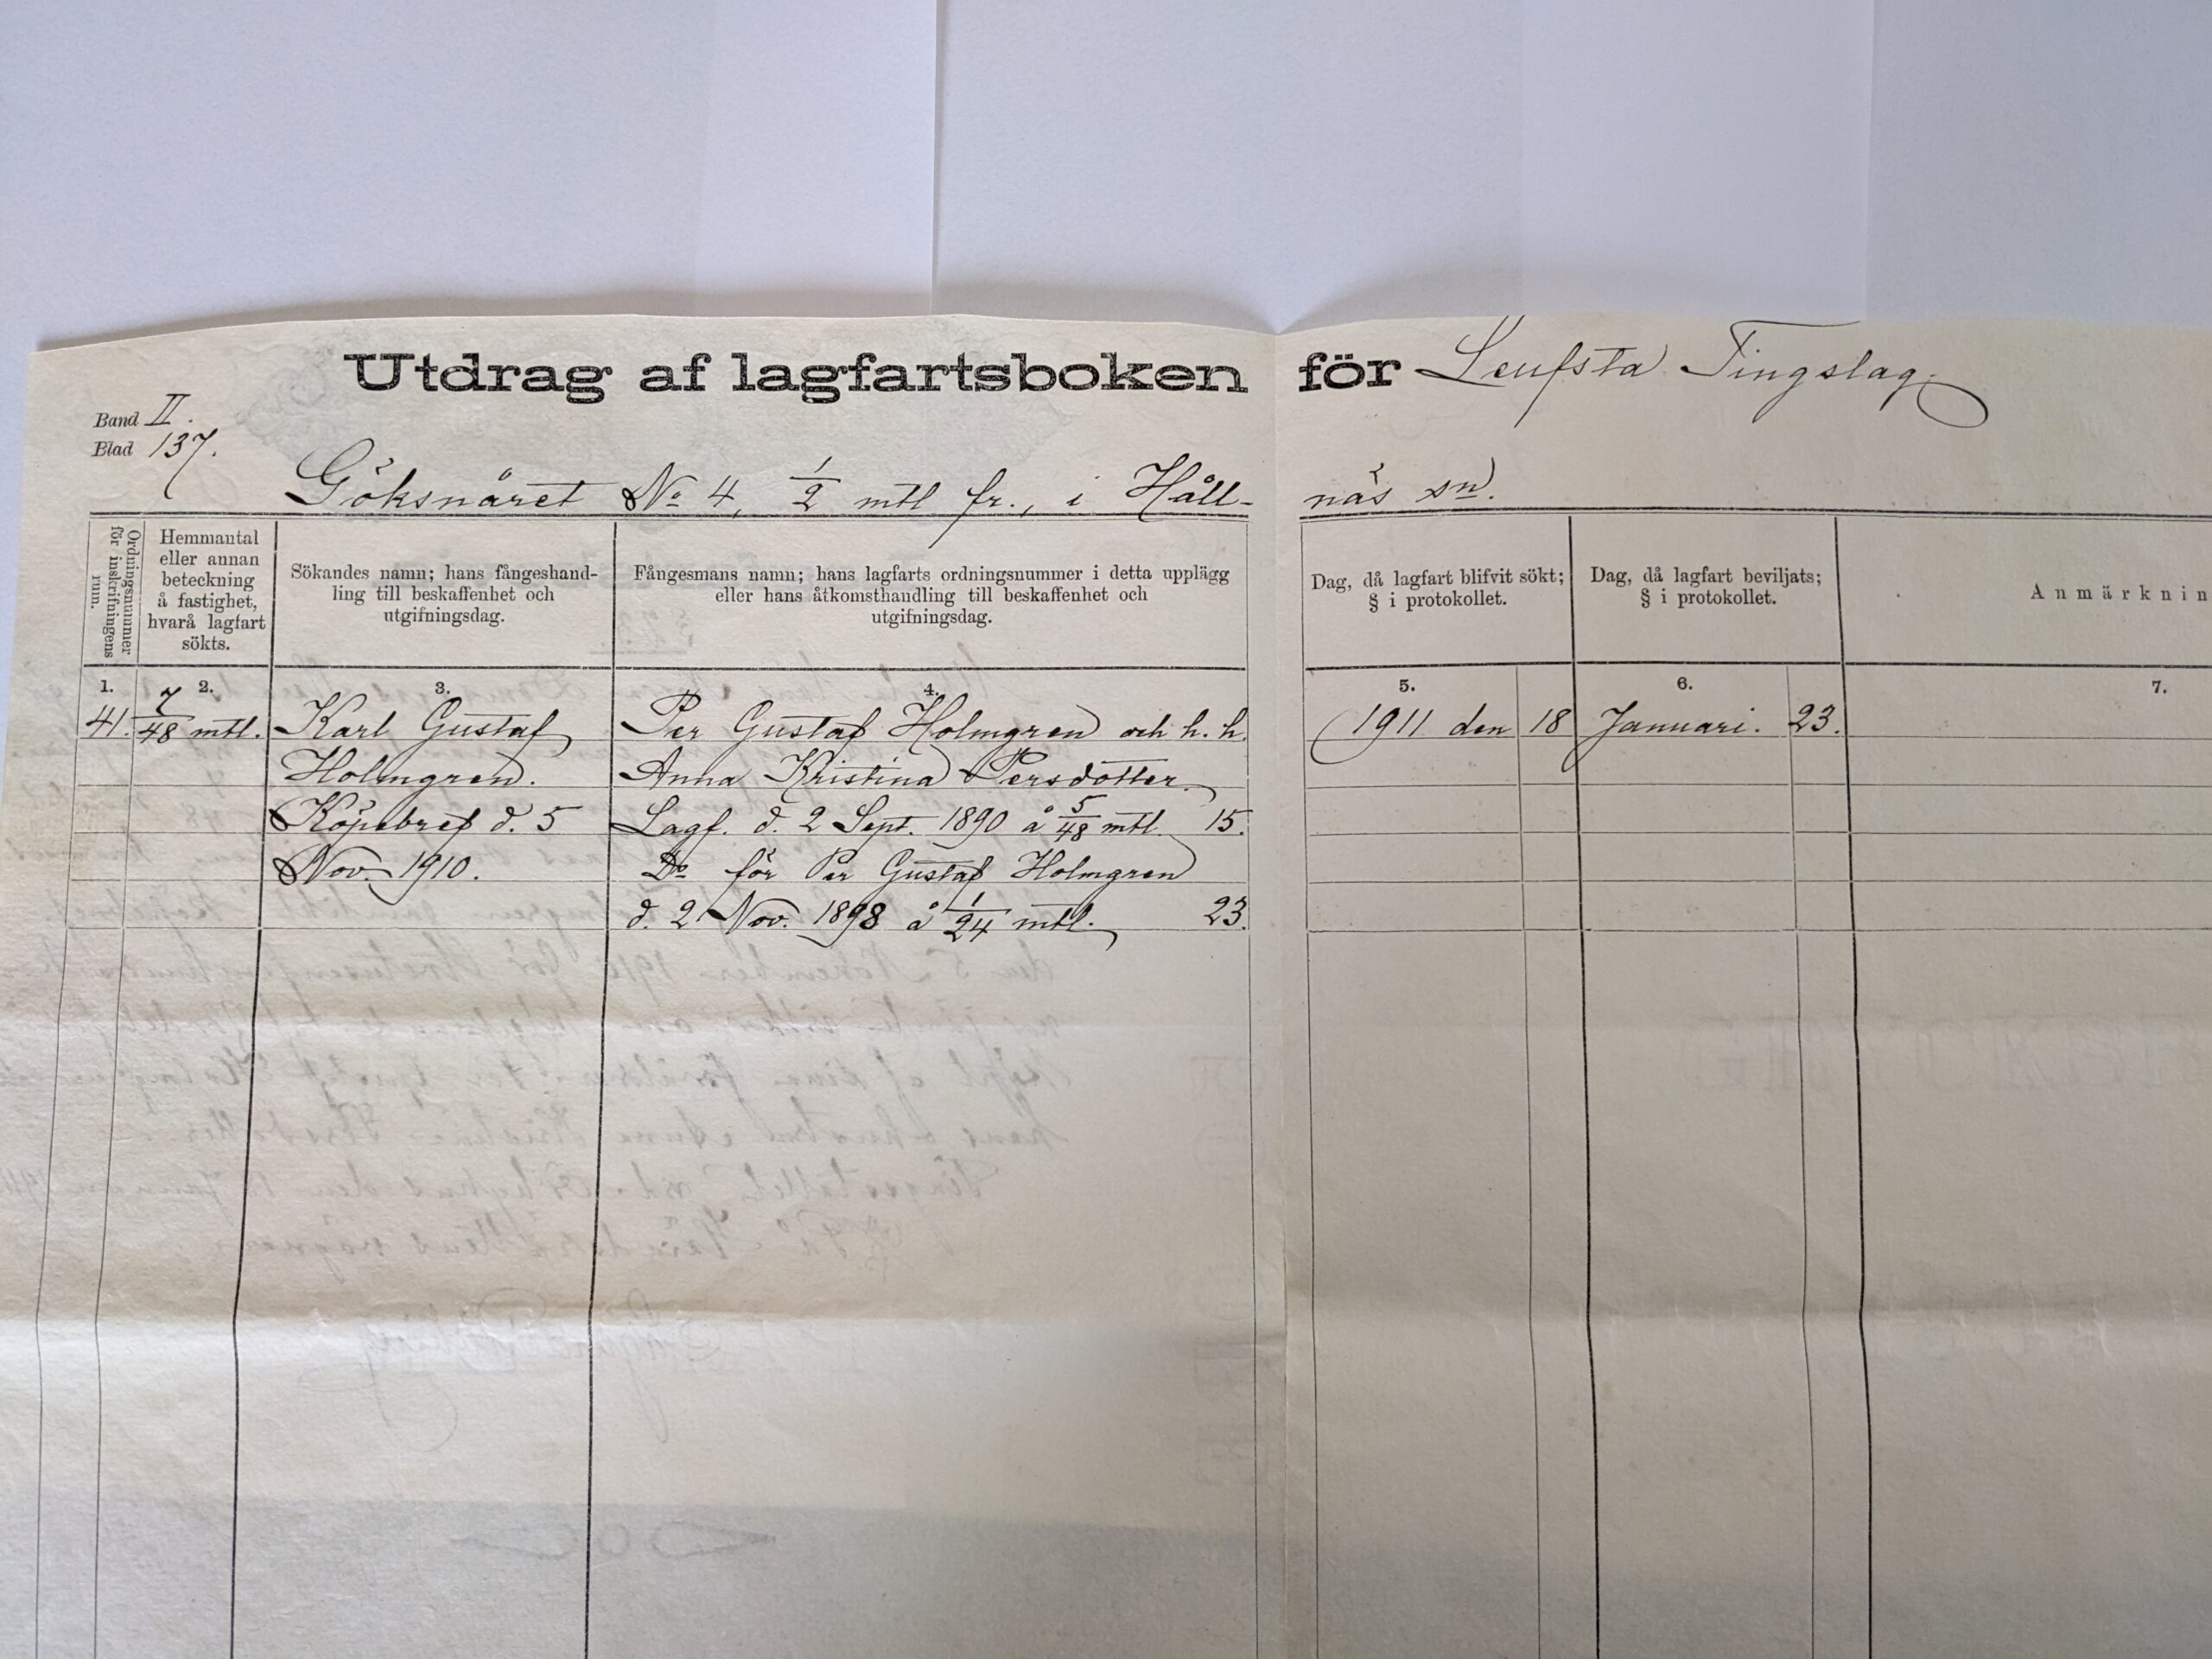 Utdrag af lagfartsboken för Leufsta Tingslag.
Band II.
Blad 137.
Göksnåret No 4, 1/2 mtl fr., i Håll-
näs sn.
Ordningsnummer
för inskrifningens
rum.
Hemmantal
eller annan
beteckning
å fastighet,
hvarå lagfart
sökts.
Sökandes namn; hans fångeshand-
ling till beskaffenhet och
utgifningsdag.
Fångesmans namn; hans lagfarts ordningsnummer i detta upplägg
eller hans åtkomsthandling till beskaffenhet och
utgifningsdag.
Dag, då lagfart blifvit sökt;
§ i protokollet.
Dag, då lagfart beviljats;
§ i protokollet.
Anmärknin
1. 2. 3. 4. 5. 6. 7.
41. 7/48 mtl. Karl Gustaf Per Gustaf Holmgren och h. h. 1911 den 18 Januari. 23.
Holmgren. Anna Kristina Persdotter.
Köpebref d. 5 Lagf. d. 2 Sept. 1890 å 5/48 mtl. 15.
Nov. 1910. Do för Per Gustaf Holmgren
d. 2 Nov. 1898 å 1/24 mtl. 23.